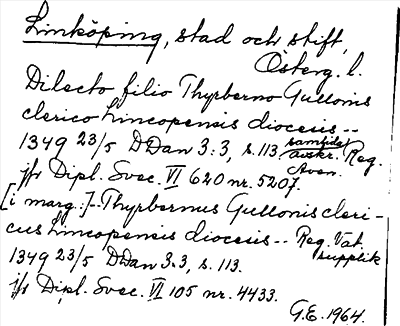 Linköping, stad och stift,
Österg. l.
Dilecto filio Thyrberno Gullonis
clerico Lincopensis diocesis --
1349 23/5 DDan 3:3, s. 113. samtidst avskr. Reg. Aven.
jfr Dipl. Svec. VI 620 nr. 5207.
[i marg.:] -- Thyrbernus Gullonis cleri-
cus Lincopensis diocesis -- Reg. Vat. supplik
1349 23/5 DDan 3:3, s. 113.
jfr Dipl. Svec. VI 105 nr. 4433.
G.E. 1964.